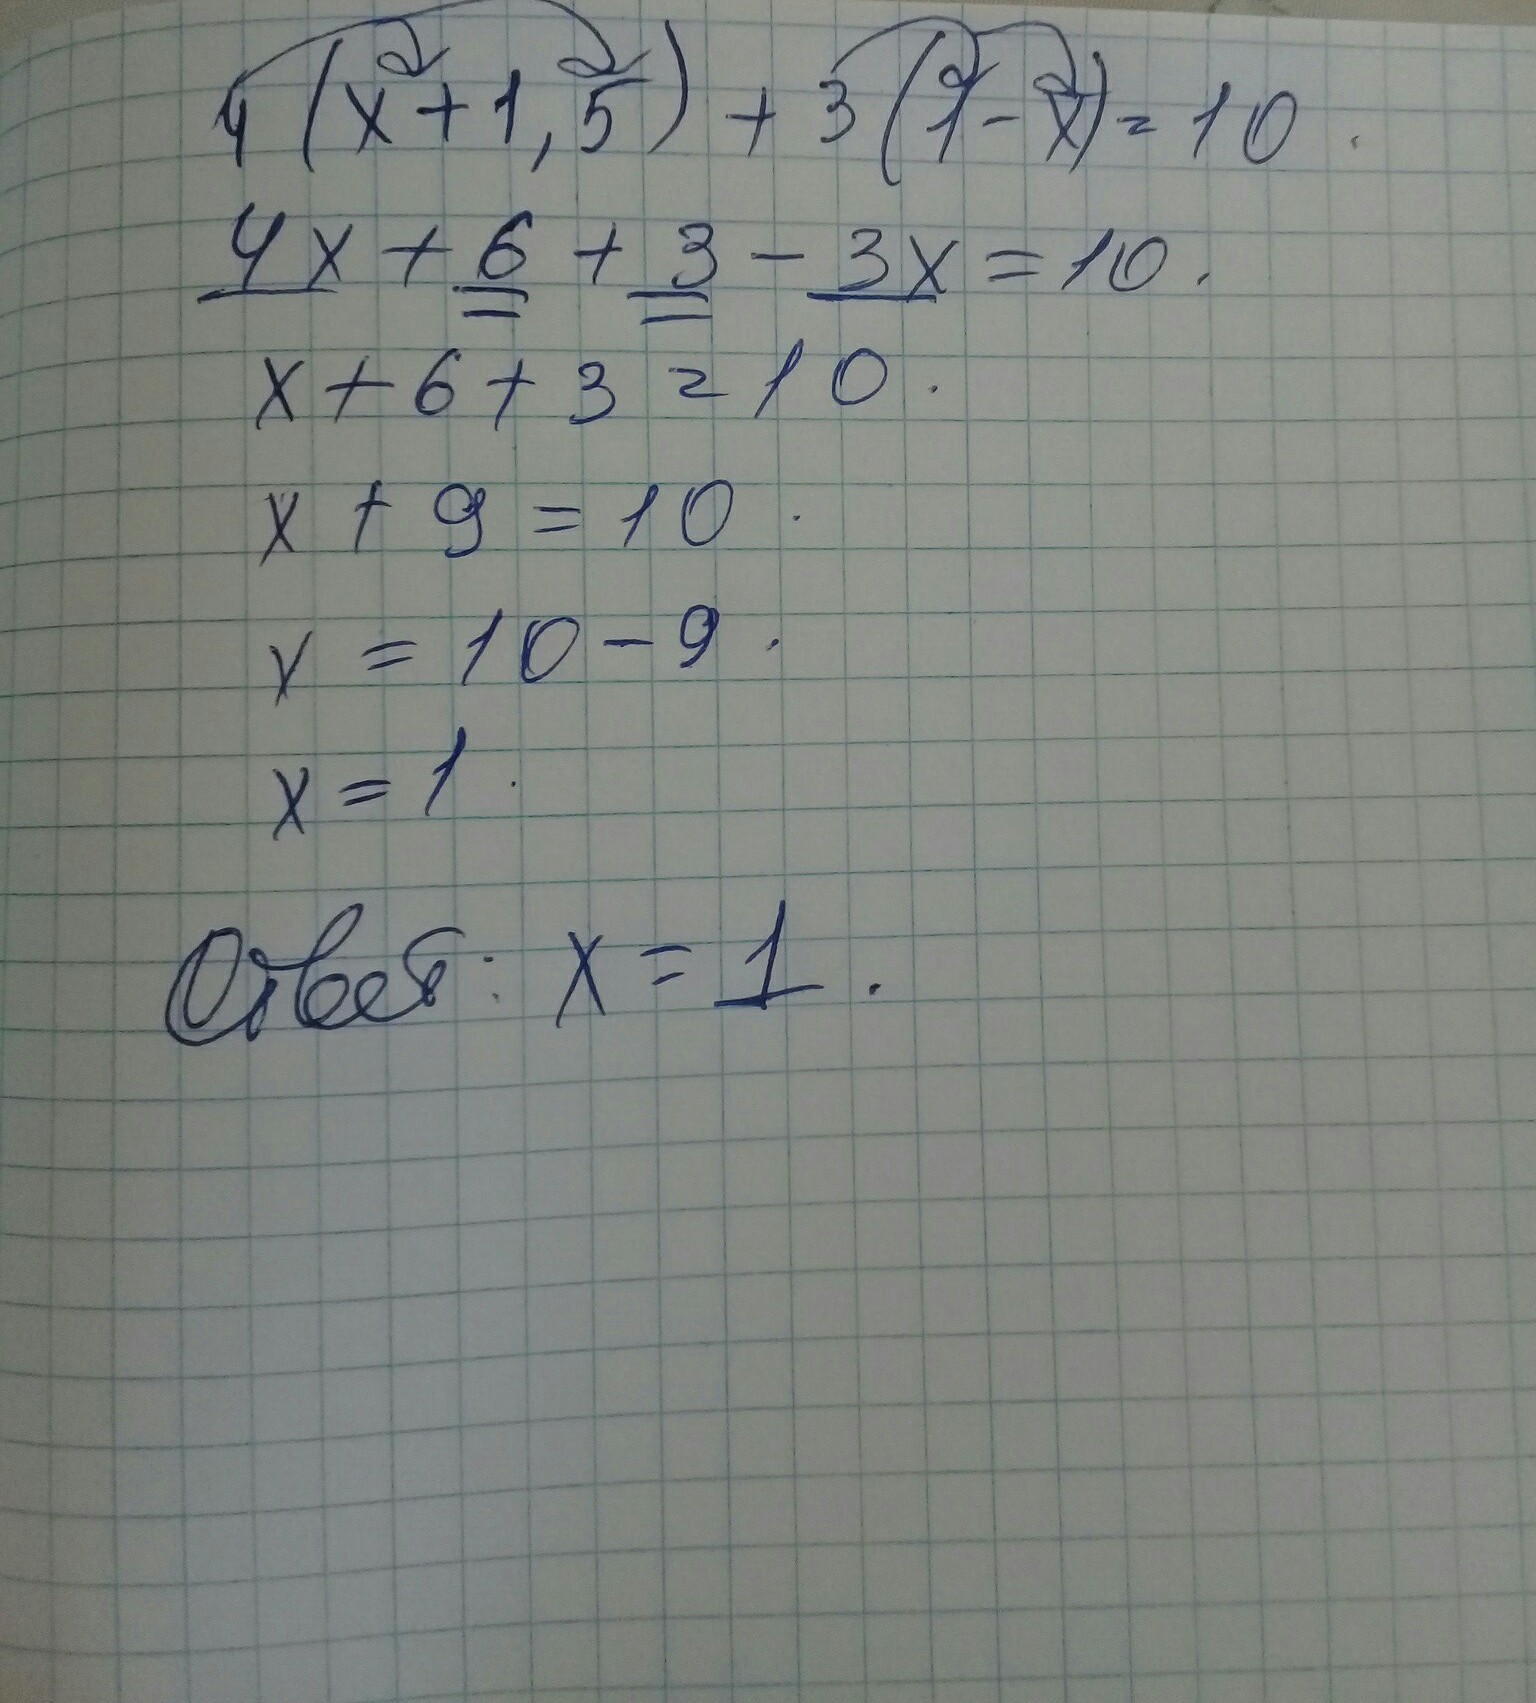 4(x+1,5)+3(1-x)=10.
4x+6+3-3x=10.
x+6+3=10.
x+9=10.
x=10-9.
x=1.
Ответ: x=1.